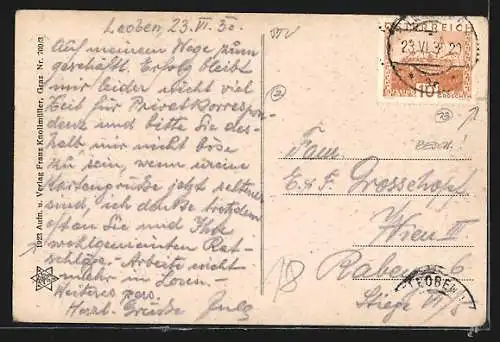 Leoben, 23. VI. 30.
Auf meinem Wege zum
geschäftl. Erfolg bleibt
mir leider nicht viel
Zeit für Privatkorrespon
denz und bitte Sie des-
halb mir nicht böse
zu sein, wenn meine
Kartengrüsse jetzt seltener
sind, ich denke trotzdem
oft an Sie und Ihre
wohlgemeinten Rat-
schläge. - Arbeite nicht
mehr in
Weiteres pers.
Herzl. Grüsse
1923 Aufn. u. Verlag Franz Knollmüller, Graz Nr. 760/3
ÖSTERREICH
23. VI. 3
10
GROSCHEN
BESCH.!
Fam.
E. & F. Grosschopf
Wien III
Stiege
LEOBEN